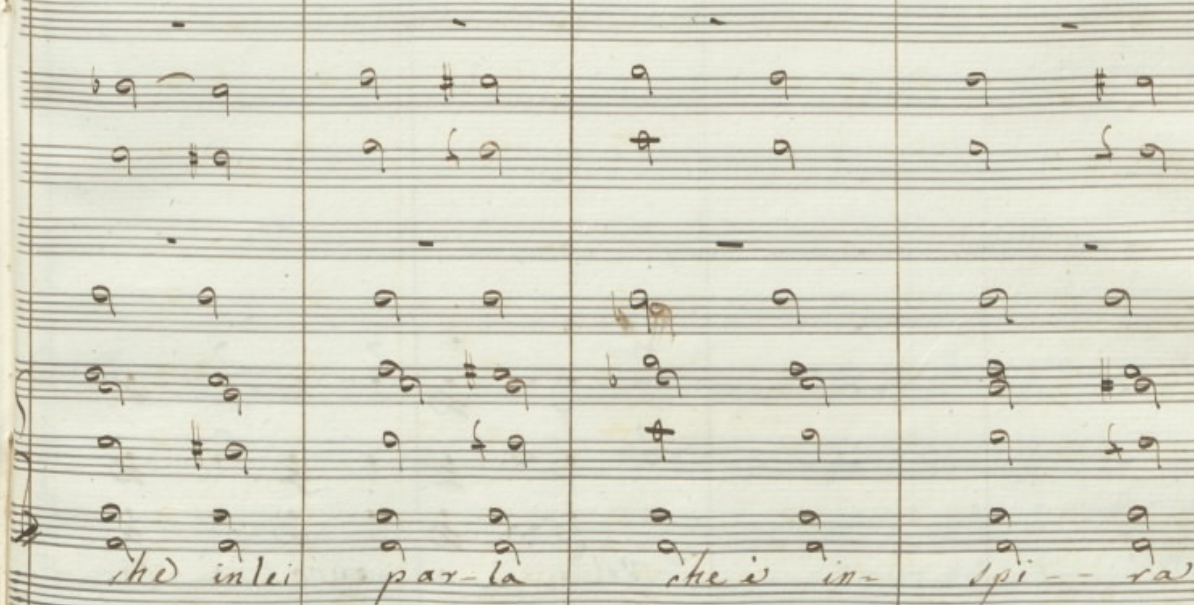 che in lei par-la che è in- spi -- ra